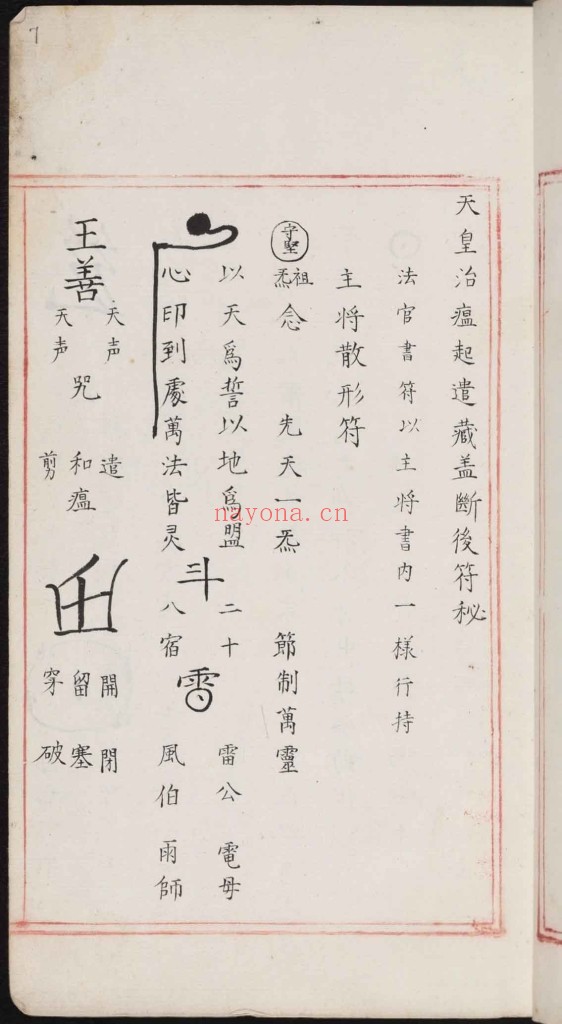 7
天皇治瘟起遣藏盖斷後符秘
法官書符以主將書内一樣行持
主將散形符
祖炁念 先天一炁 節制萬靈
以天爲誓以地爲盟 二十 雷公 電母
心印到處萬法皆灵 斗 八宿 風伯 雨師
王善 天声 天声 咒 遣 和瘟 剪 開閉 留塞 穿破
nayona.cn